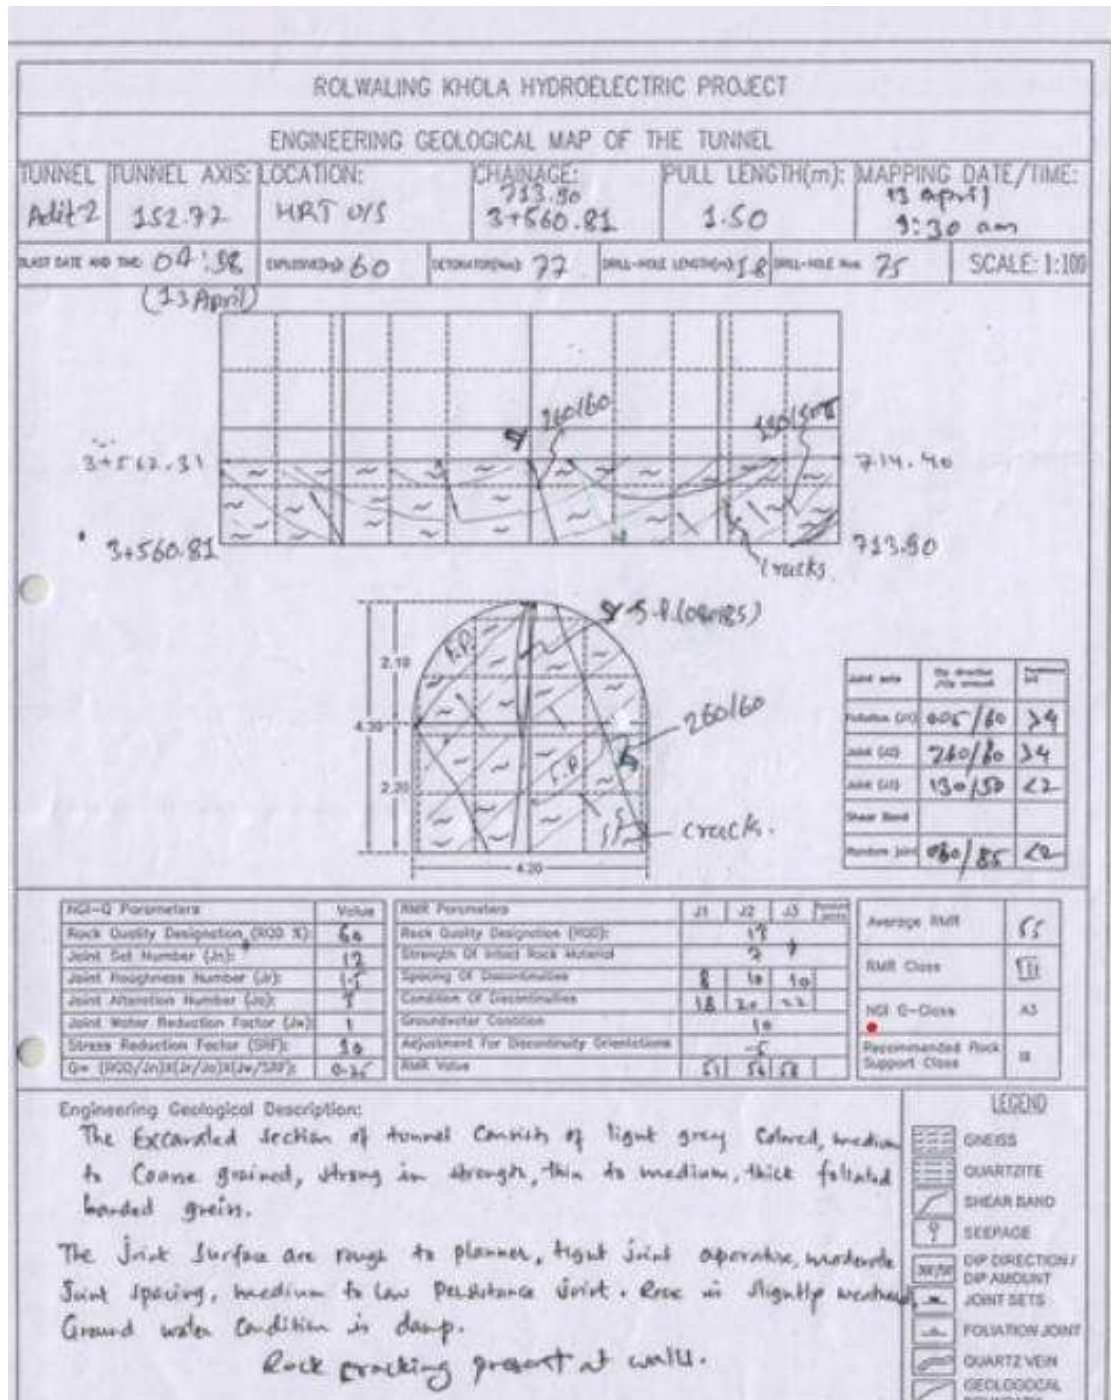 ROLWALING KHOLA HYDROELECTRIC PROJECT
ENGINEERING GEOLOGICAL MAP OF THE TUNNEL
TUNNEL TUNNEL AXIS: LOCATION: CHAINAGE: PULL LENGTH(m): MAPPING DATE/TIME:
Adit 2 152.72 HRT U/S 713.90 3+560.81 1.50 13 april 9:30 am
BLAST DATE AND TIME: 04:38 EXPLOSIVE(kg): 60 DETONATOR(Nos): 77 DRILL-HOLE LENGTH(m): 1.8 DRILL-HOLE Nos: 75 SCALE: 1:100
(13 April)
260/60
3+562.31
714.40
3+560.81
713.90
cracks
2.10
F.P.
260/60
4.30
F.P.
2.20
crack.
4.20
Joint sets Dip direction /Dip amount
Foliation (J1) 005/60 >4
Joint (J2) 260/60 >4
Joint (J3) 130/50 <2
Shear Band
Random joint 080/85 <2
NGI-Q Parameters Value
Rock Quality Designation (RQD %): 60
Joint Set Number (Jn): 12
Joint Roughness Number (Jr): 1.5
Joint Alteration Number (Ja):
Joint Water Reduction Factor (Jw): 1
Stress Reduction Factor (SRF): 10
Q= (RQD/Jn)X(Jr/Ja)X(Jw/SRF): 0.25
RMR Parameters J1 J2 J3
Rock Quality Designation (RQD): 17
Strength Of Intact Rock Material 7
Spacing Of Discontinuities 8 10 10
Condition Of Discontinuities 18 20 22
Groundwater Condition 10
Adjustment For Discontinuity Orientations -5
RMR Value 51 56 58
Average RMR 55
RMR Class III
NGI Q-Class A3
Recommended Rock Support Class III
Engineering Geological Description:
The Excavated section of tunnel Consists of light grey Colored, medium
to Coarse grained, strong in strength, thin to medium, thick foliated
banded gneiss.
The joint Surface are rough to planner, tight joint aperature, moderate
Joint spacing, medium to Low Persistance Joint. Rock is slightly weathered,
Ground water Condition is damp.
Rock cracking present at walls.
LEGEND
GNEISS
QUARTZITE
SHEAR BAND
SEEPAGE
DIP DIRECTION /
DIP AMOUNT
JOINT SETS
FOLIATION JOINT
QUARTZ VEIN
GEOLOGOCAL